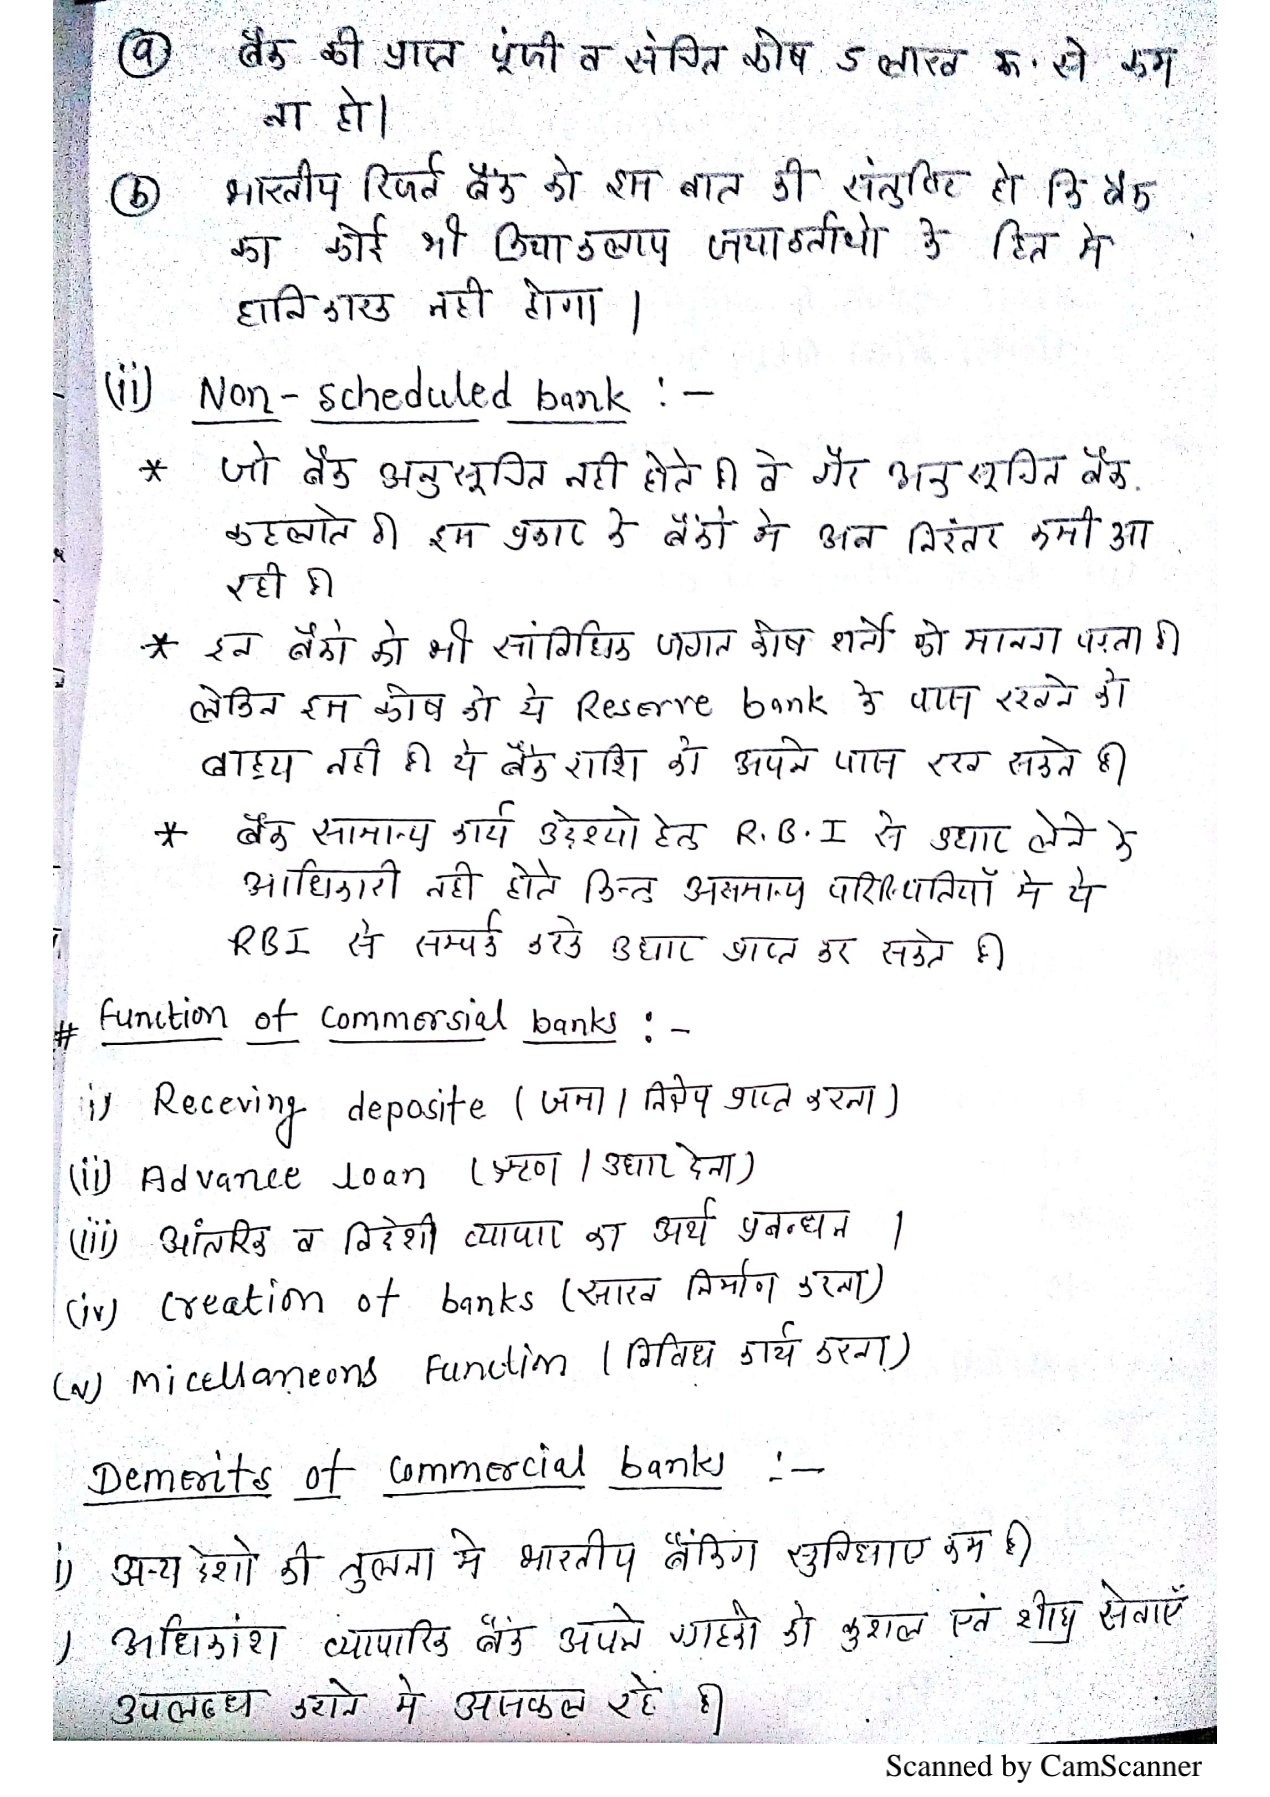 (a) बैंक की प्राप्त पूंजी व संचित कोष 5 लाख रू. से कम
ना हो।
(b) भारतीय रिजर्व बैंक को इस बात की संतुष्टि हो कि बैंक
का कोई भी क्रियाकलाप जमाकर्ताओ के हित मे
हानिकारक नही होगा ।
(ii) Non-scheduled bank :-
* जो बैंक अनुसूचित नही होते है वे गैर अनुसूचित बैंक
कहलाते है इस प्रकार के बैंकों मे अब निरंतर कमी आ
रही है
* इन बैंको को भी सांविधिक जगत कोष शर्तो को मानना पडता है
लेकिन इस कोष को ये Reserve bank के पास रखने को
बाह्य नही है ये बैंक राशि को अपने पास रख सकते है
* बैंक सामान्य कार्य उद्देश्यो हेतु R.B.I से उधार लेने के
आधिकारी नही होते किन्तु असमान्य परिस्थितियॉ मे ये
RBI से सम्पर्क करके उधार प्राप्त कर सकते है
# Function of commersial banks :-
i) Receving deposite (जमा / निक्षेप प्राप्त करना)
(ii) Advance loan (ऋण / उधार देना)
(iii) आंतरिक व विदेशी व्यापार का अर्थ प्रबन्धन ।
(iv) creation of banks (साख निर्माण करना)
(v) micellaneons Function (विविध कार्य करना)
Demerits of commercial banks :-
i) अन्य देशो की तुलना मे भारतीय बैंकिग सुविधाए कम है
) अधिकांश व्यापारिक बैंक अपने ग्राहको को कुशल एवं शीघ्र सेवाएँ
उपलब्ध कराने मे असफल रहे है
Scanned by CamScanner